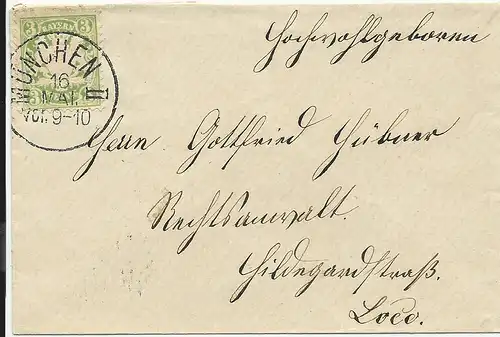 3 BAYERN 3
MÜNCHEN II
16
MAI.
Vor. 9-10
Hochwohlgeboren
Herrn Gottfried Hübner
Rechtsanwalt.
Hildegardstraß.
Loco.